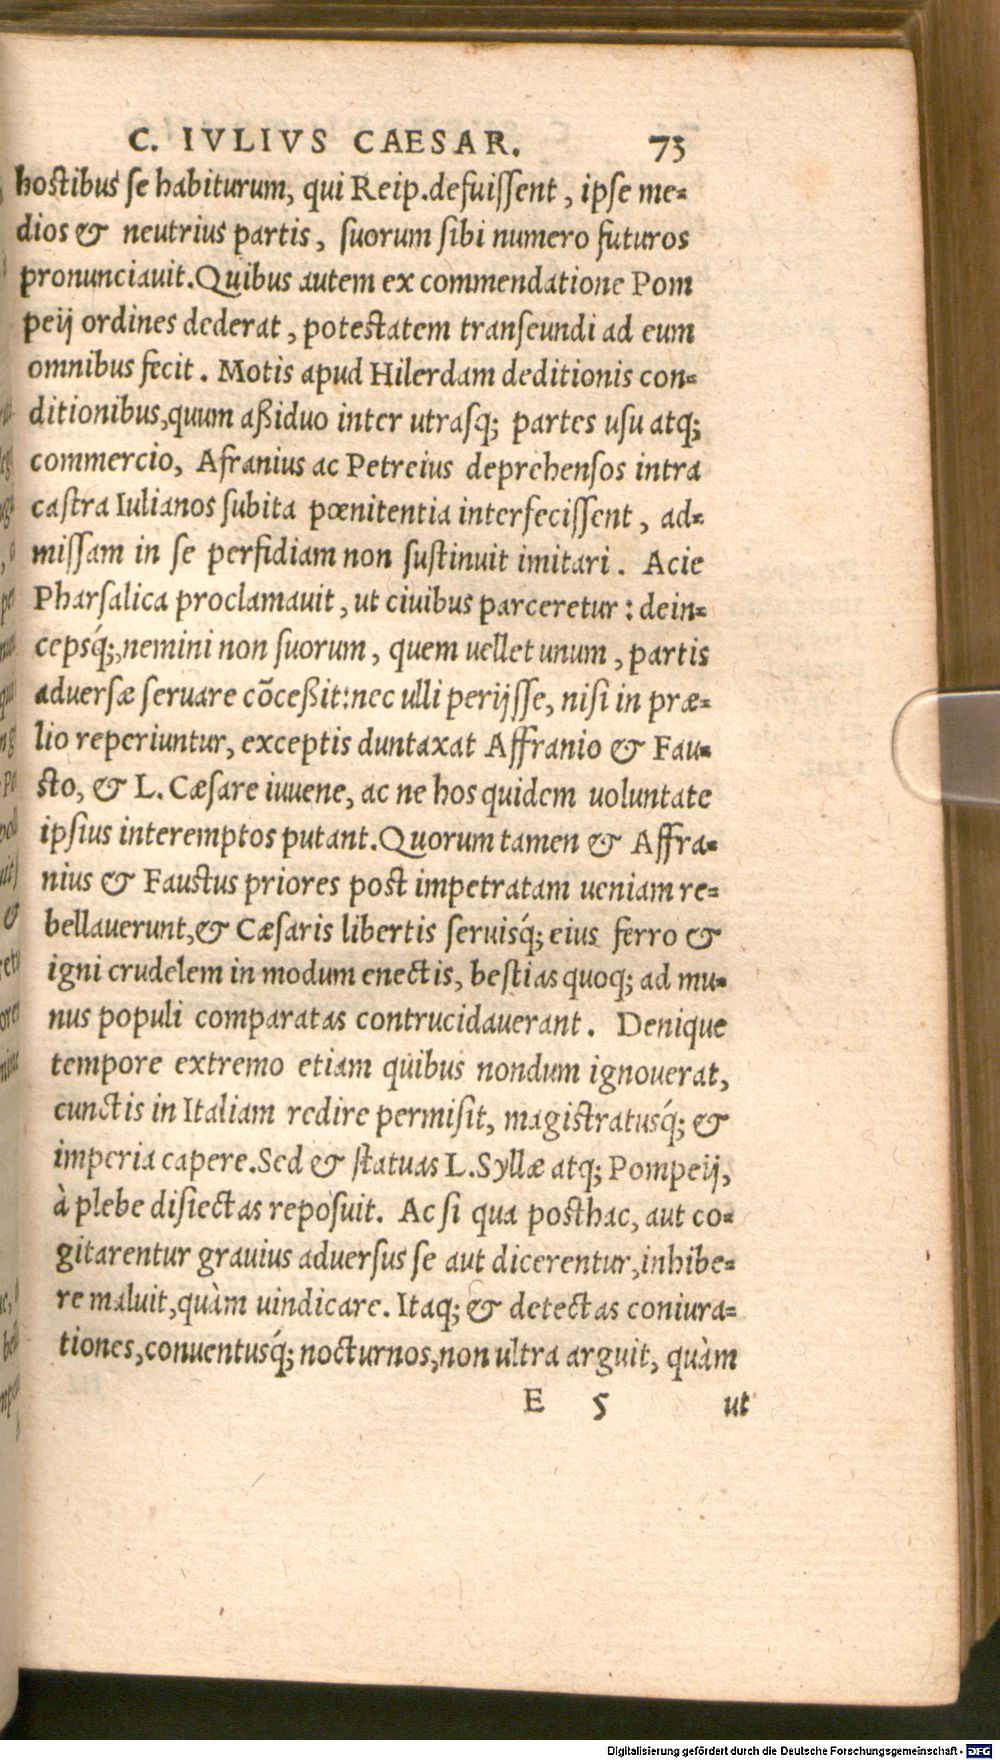 C. IVLIVS CAESAR. 73
hostibus se habiturum, qui Reip.defuissent, ipse me-
dios & neutrius partis, suorum sibi numero futuros
pronunciauit.Quibus autem ex commendatione Pom
peij ordines dederat, potestatem transeundi ad eum
omnibus fecit. Motis apud Hilerdam deditionis con-
ditionibus,quum aßiduo inter utrasq; partes usu atq;
commercio, Afranius ac Petreius deprehensos intra
castra Iulianos subita pœnitentia interfecissent, ad-
missam in se perfidiam non sustinuit imitari. Acie
Pharsalica proclamauit, ut ciuibus parceretur: dein-
cepsq́;,nemini non suorum, quem uellet unum, partis
aduersæ seruare cõceßit:nec ulli perijsse, nisi in præ-
lio reperiuntur, exceptis duntaxat Affranio & Fau-
sto, & L. Cæsare iuuene, ac ne hos quidem uoluntate
ipsius interemptos putant.Quorum tamen & Affra-
nius & Faustus priores post impetratam ueniam re-
bellauerunt,& Cæsaris libertis seruisq́; eius ferro &
igni crudelem in modum enectis, bestias quoq; ad mu-
nus populi comparatas contrucidauerant. Denique
tempore extremo etiam quibus nondum ignouerat,
cunctis in Italiam redire permisit, magistratusq́; &
imperia capere.Sed & statuas L.Syllæ atq; Pompeij,
à plebe disiectas reposuit. Ac si qua posthac, aut co-
gitarentur grauius aduersus se aut dicerentur,inhibe-
re maluit,quàm uindicare. Itaq; & detectas coniura-
tiones,conuentusq́; nocturnos,non ultra arguit, quàm
E 5 ut
Digitalisierung gefördert durch die Deutsche Forschungsgemeinschaft - DFG